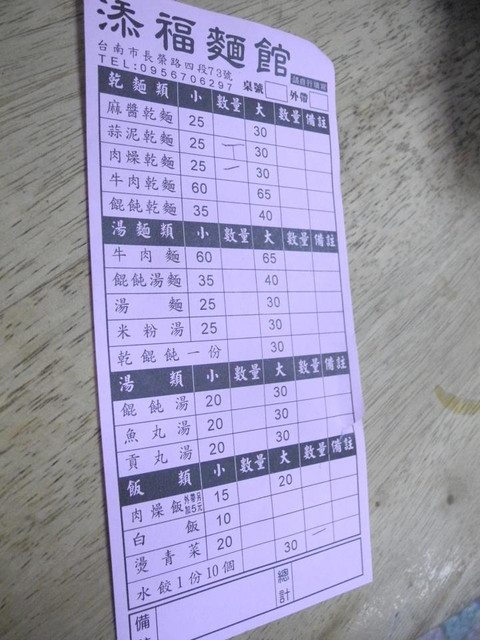 添福麵館
台南市長榮路四段73號
TEL:0956706297 桌號 外帶
乾麵類 小 數量 大 數量 備註
麻醬乾麵 25 30
蒜泥乾麵 25 30
肉燥乾麵 25 一 30
牛肉乾麵 60 65
餛飩乾麵 35 40
湯麵類 小 數量 大 數量 備註
牛肉麵 60 65
餛飩湯麵 35 40
湯麵 25 30
米粉湯 25 30
乾餛飩一份 30
湯類 小 數量 大 數量 備註
餛飩湯 20 30
魚丸湯 20 30
貢丸湯 20 30
飯類 小 數量 大 數量 備註
肉燥飯 外帶另加5元 15 20
白飯 10
燙青菜 20
水餃1份10個 30 一
備 總計